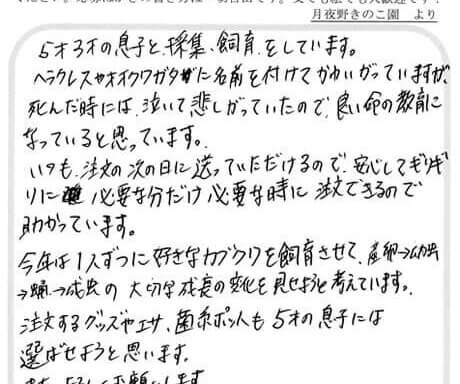 月夜野きのこ園 より
5才3才の息子と、採集、飼育、をしています。
ヘラクレスやオオクワガタに名前を付けてかわいがっていますが、
死んだ時には、泣いて悲しがっていたので、良い命の教育に
なっていると思っています。
いつも、注文の次の日に送っていただけるので、安心してギリギ
リに 必要な分だけ必要な時に注文できるので
助かっています。
今年は1人ずつに好きなカブクワを飼育させて、産卵→幼虫
→蛹→成虫の 大切な成長の変化を見せようと考えています。
注文するグッズやエサ、菌糸ポットも5才の息子には
選ばせようと思います。